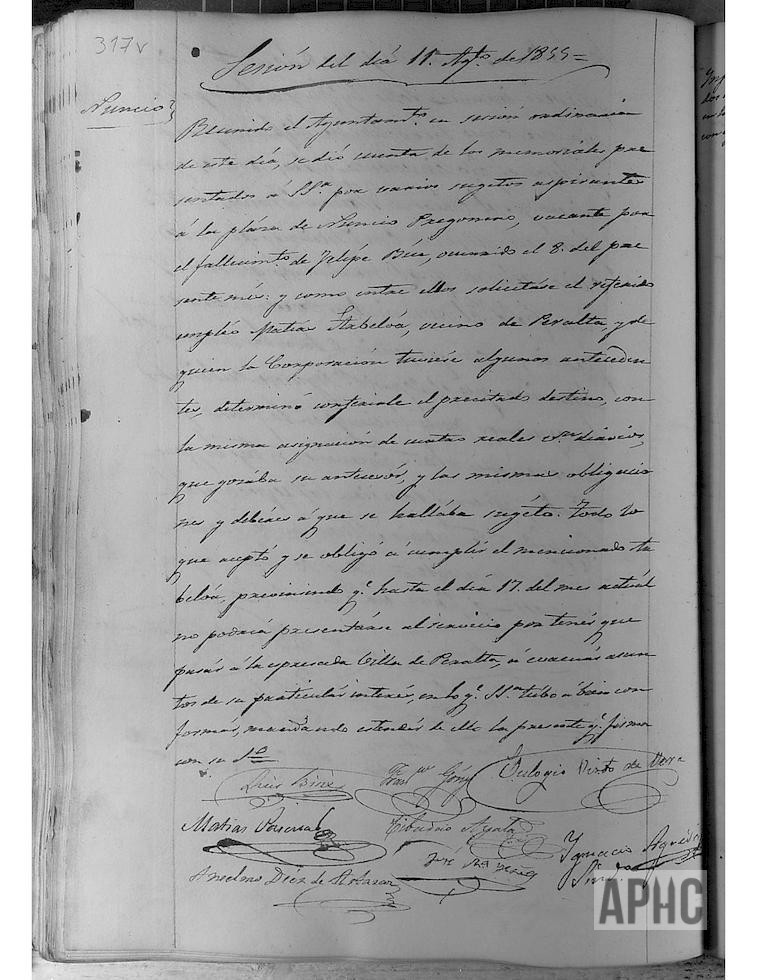 317v
Sesión del día 11. Agto. de 1855=
Nuncio
Reunido el Ayuntamto. en sesión ordinaria
de este día, se dió cuenta de los memoriales pre
sentados á SSa. por varios sugetos aspirantes
á la plaza de Nuncio Pregonero, vacante por
el fallecimto. de Felipe ocurrido el 8. del pre
sente més: y como entre ellos solicitáse el referido
empléo Matías vecino de Peralta, y de
quien la Corporación tuviese algunos anteceden
tes, determinó conferirle el precitado destino, con
la misma asignación de cuatro reales von. diarios,
que gozába su antecesór, y las mismas obligacio
nes y debéres á que se hallába sugéto. Todo lo
que aceptó y se obligó á cumplir el mencionado Ita
beloa, previniendo qe. hasta el día 17. del mes actuál
no podría presentarse al servicio por tenér que
pasár á la espresada Villa de Peralta, á evacuár asun
tos de su particulár interés, en lo qe. SSa. tubo á bien con
formár, mandando estendér de ello la presente qe. firma
con su So.
Luis
Franco. Gómez
Eulogio Pinto de Vera
Matias Pascual
Tiburcio Ayala
José
Ygnacio
Anselmo Díez de
APHC